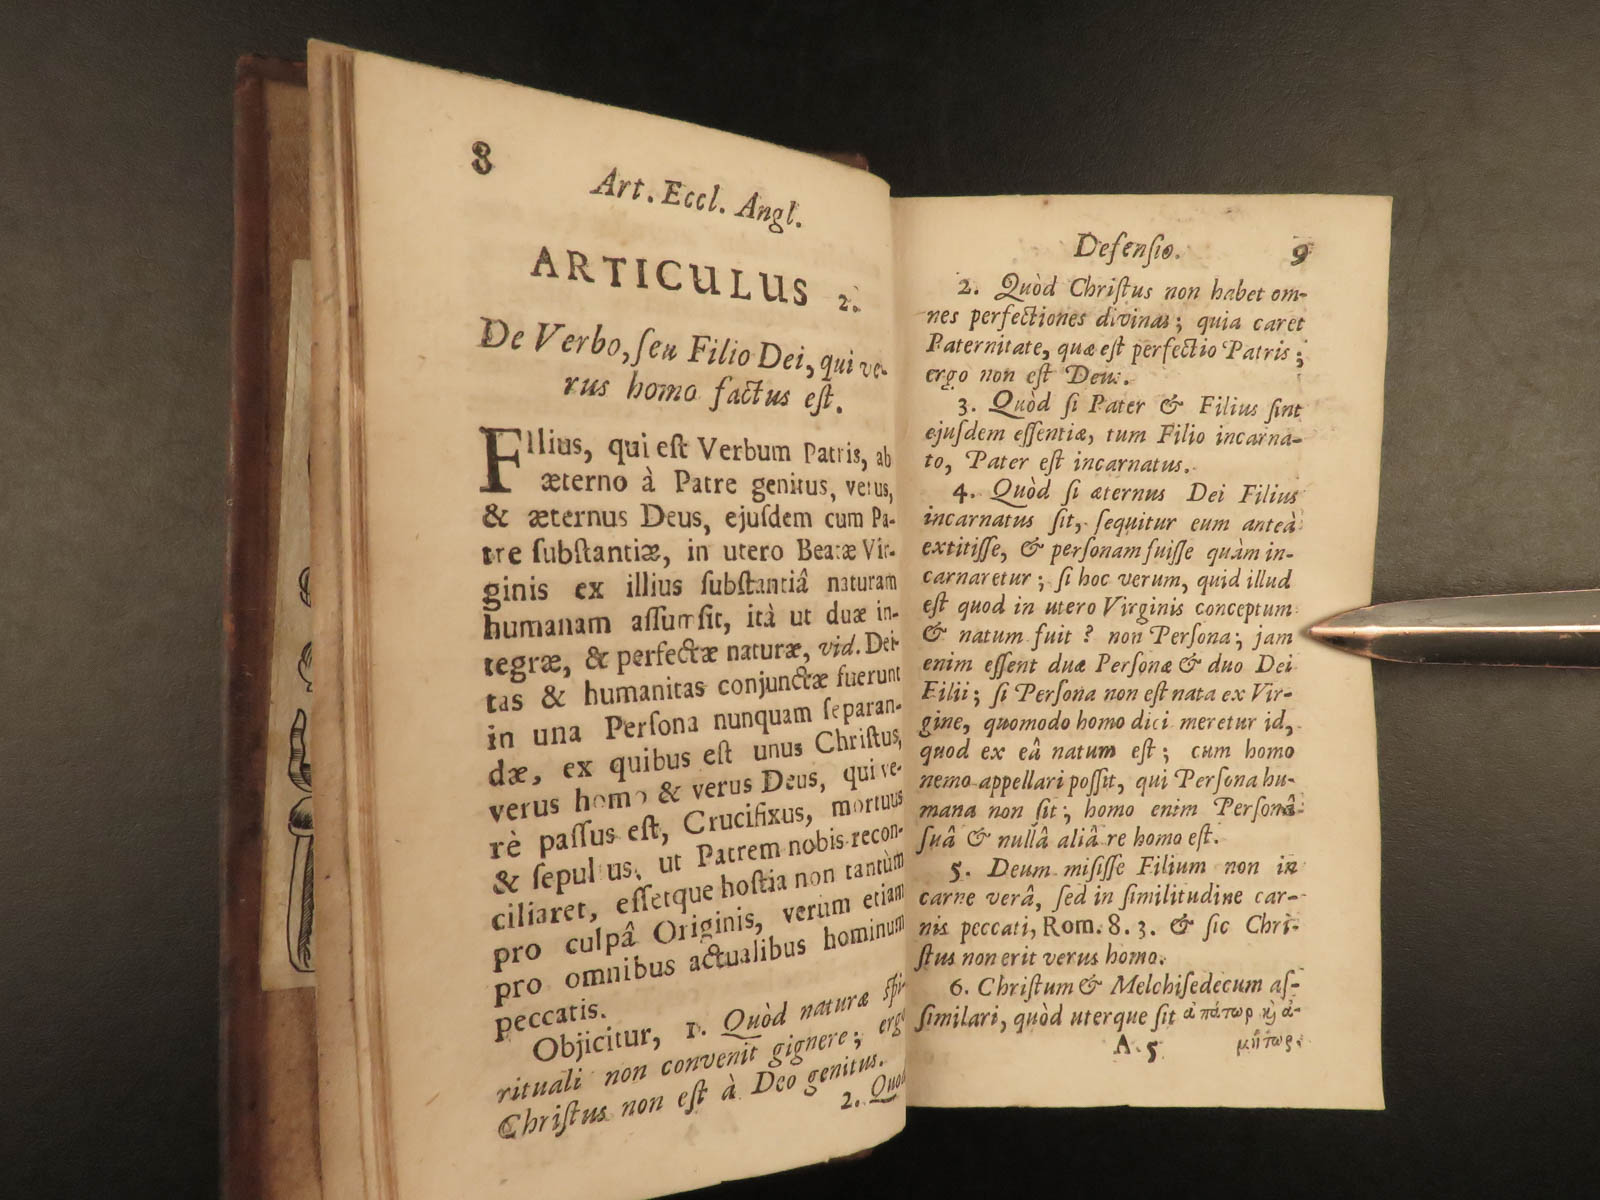 8
Art. Eccl. Angl.
ARTICULUS 2.
De Verbo, ſeu Filio Dei, qui ve-
rus homo factus eſt.
FIlius, qui eſt Verbum Patris, ab
æterno à Patre genitus, verus,
& æternus Deus, ejuſdem cum Pa-
tre ſubſtantiæ, in utero Beatæ Vir-
ginis ex illius ſubſtantiâ naturam
humanam aſſumſit, ità ut duæ in-
tegræ, & perfectæ naturæ, vid. Dei-
tas & humanitas conjunctæ fuerunt
in una Perſona nunquam ſeparan-
dæ, ex quibus eſt unus Chriſtus,
verus homo & verus Deus, qui ve-
rè paſſus eſt, Crucifixus, mortuus
& ſepultus, ut Patrem nobis recon-
ciliaret, eſſetque hoſtia non tantùm
pro culpâ Originis, verùm etiam
pro omnibus actualibus hominum
peccatis.
Objicitur, 1. Quòd naturæ ſpi-
rituali non convenit gignere; ergo
Chriſtus non eſt à Deo genitus.
2. Quod
Defenſio. 9
2. Quòd Chriſtus non habet om-
nes perfectiones divinas; quia caret
Paternitate, quæ eſt perfectio Patris;
ergo non eſt Deus.
3. Quòd ſi Pater & Filius ſint
ejuſdem eſſentiæ, tum Filio incarna-
to, Pater eſt incarnatus.
4. Quòd ſi æternus Dei Filius
incarnatus ſit, ſequitur eum anteà
extitiſſe, & perſonam fuiſſe quàm in-
carnaretur; ſi hoc verum, quid illud
eſt quod in utero Virginis conceptum
& natum fuit? non Perſona; jam
enim eſſent duæ Perſonæ & duo Dei
Filii; ſi Perſona non eſt nata ex Vir-
gine, quomodo homo dici meretur id,
quod ex eâ natum eſt; cum homo
nemo appellari poſſit, qui Perſona hu-
mana non ſit; homo enim Perſonâ
ſuâ & nullâ aliâ re homo eſt.
5. Deum miſiſſe Filium non in
carne verâ, ſed in ſimilitudine car-
nis peccati, Rom. 8. 3. & ſic Chri-
ſtus non erit verus homo.
6. Chriſtum & Melchiſedecum aſ-
ſimilari, quòd uterque ſit ἀπάτωρ ϗ ἀ-
A 5 μήτωρ.